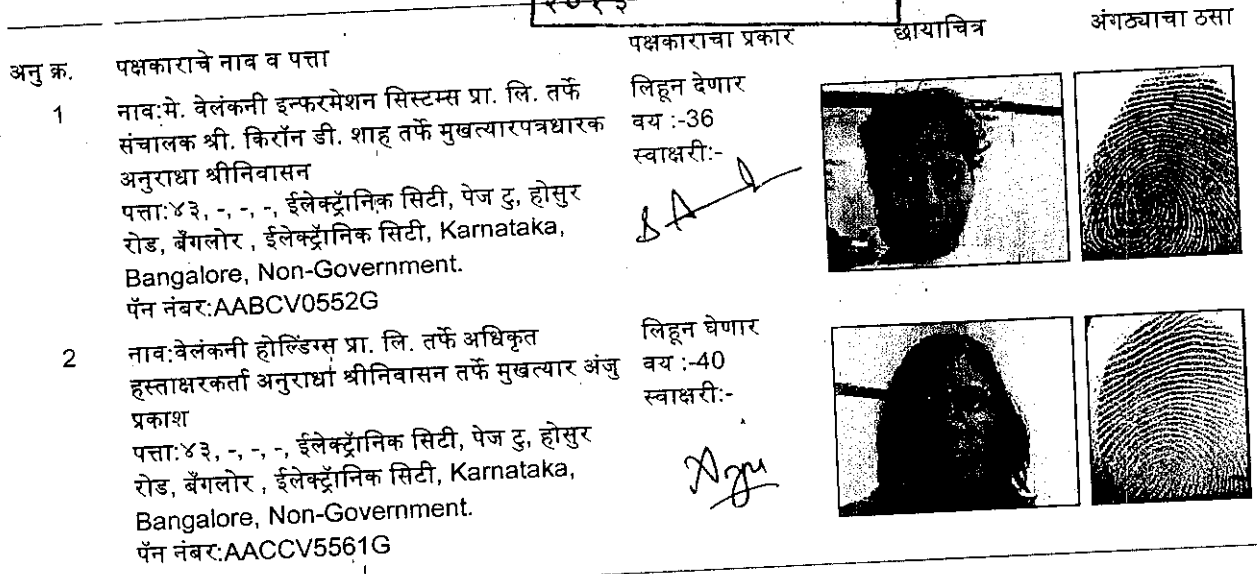 २०१३
अनु क्र. पक्षकाराचे नाव व पत्ता पक्षकाराचा प्रकार छायाचित्र अंगठ्याचा ठसा
1 नाव:मे. वेलंकनी इन्फरमेशन सिस्टम्स प्रा. लि. तर्फे
संचालक श्री. किरॉन डी. शाह तर्फे मुखत्यारपत्रधारक
अनुराधा श्रीनिवासन
पत्ता:४३, -, -, -, ईलेक्ट्रॅानिक सिटी, पेज टु, होसुर
रोड, बँगलोर , ईलेक्ट्रॅानिक सिटी, Karnataka,
Bangalore, Non-Government.
पॅन नंबर:AABCV0552G
लिहून देणार
वय :-36
स्वाक्षरी:-
2 नाव:वेलंकनी होल्डिंग्स प्रा. लि. तर्फे अधिकृत
हस्ताक्षरकर्ता अनुराधा श्रीनिवासन तर्फे मुखत्यार अंजु
प्रकाश
पत्ता:४३, -, -, -, ईलेक्ट्रॅानिक सिटी, पेज टु, होसुर
रोड, बँगलोर , ईलेक्ट्रॅानिक सिटी, Karnataka,
Bangalore, Non-Government.
पॅन नंबर:AACCV5561G
लिहून घेणार
वय :-40
स्वाक्षरी:-